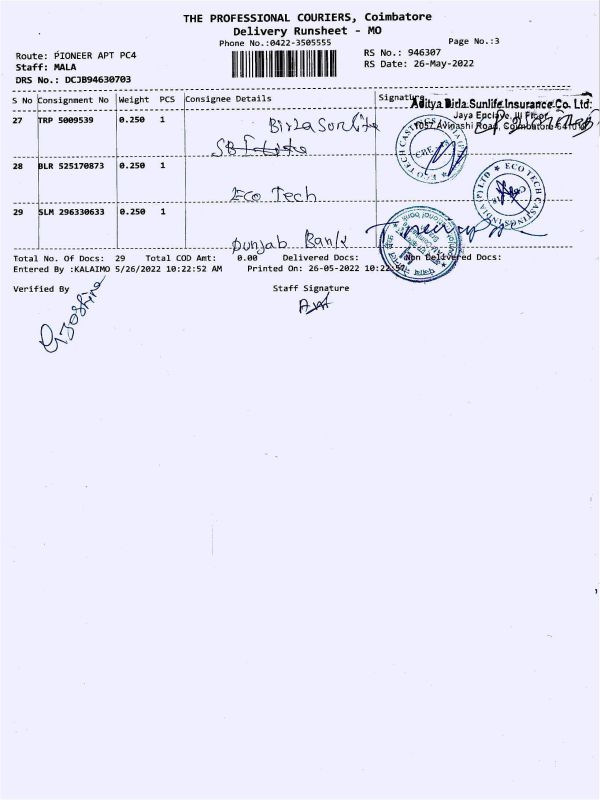 THE PROFESSIONAL COURIERS, Coimbatore
Delivery Runsheet - MO
Phone No.:0422-3505555
Page No.:3
Route: PIONEER APT PC4
RS No.: 946307
Staff: MALA
RS Date: 26-May-2022
DRS No.: DCJB94630703
S No Consignment No Weight PCS Consignee Details Signature
Aditya Birla Sunlife Insurance Co. Ltd.
Jaya Enclave, III Floor
1057 Avinashi Road, Coimbatore
27 TRP 5009539 0.250 1 Birla Sunlife
ECO TECH CASTINGS INDIA (P) LTD
CBE
28 BLR 525170873 0.250 1
Eco Tech
ECO TECH CASTINGS INDIA (P) LTD
29 SLM 296330633 0.250 1
Punjab Bank
Total No. Of Docs: 29 Total COD Amt: 0.00 Delivered Docs: Non Delivered Docs:
Entered By :KALAIMO 5/26/2022 10:22:52 AM Printed On: 26-05-2022 10:22:57
Verified By Staff Signature